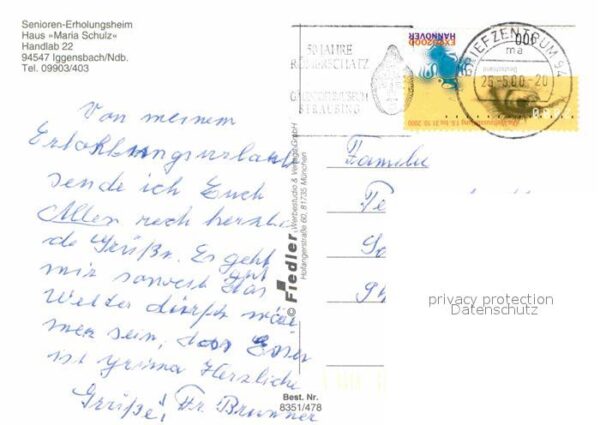 Senioren-Erholungsheim
Haus »Maria Schulz«
Handlab 22
94547 Iggensbach/Ndb.
Tel. 09903/403
50 JAHRE
RÖMERSCHATZ
GÄUBODENMUSEUM
STRAUBING
EXPO2000
HANNOVER
BRIEFZENTRUM 94
ma
25.-5.00.-20
Von meinem
Erhohlungsurlaub
sende ich Euch
Allen recht herzli
de Grüße. Es geht
mir soweit gut. Das
Wetter dürfte wär
mer sein, das Essen
ist prima Herzliche
Grüße! Fr. Brunner
Familie
© Fiedler
Werbestudio & Verlags GmbH
Hofangerstraße 60, 81735 München
Best. Nr.
8351/478
privacy protection
Datenschutz